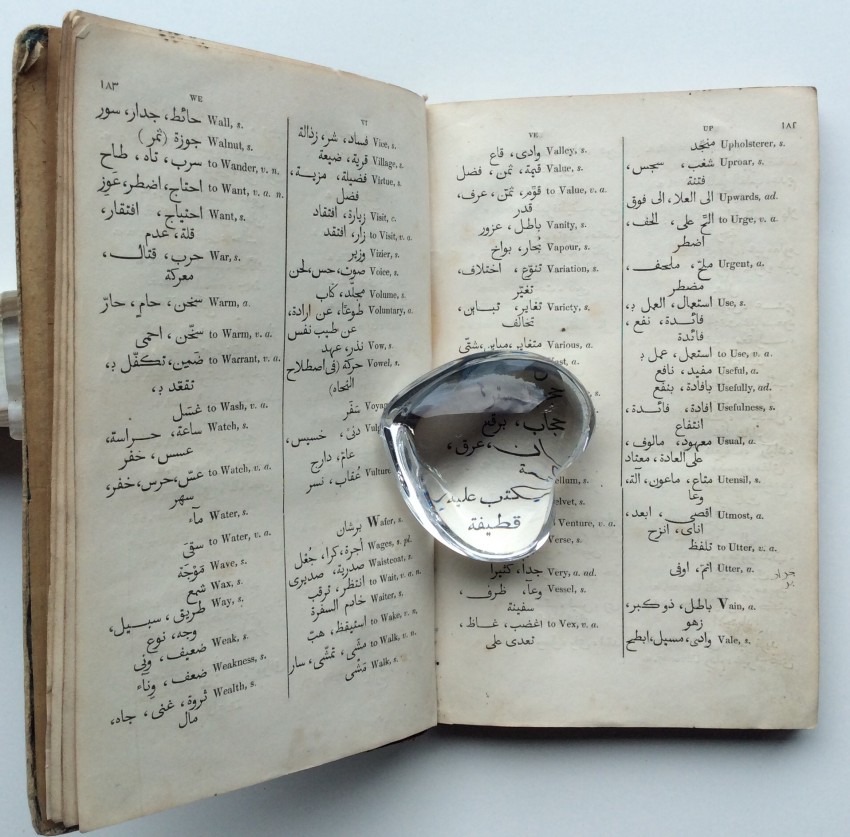 ١٨٢
UP
Upholsterer, s. منجّد
Uproar, s. شغب، سجس،
فتنة
Upwards, ad. الى العلا، الى فوق
to Urge, v. a. الحّ على، الحف،
اضطر
Urgent, a. ملحّ، ملحف،
مضطر
Use, s. استعمال، العمل بـ،
فائدة، نفع،
فائدة
to Use, v. a. استعمل، عمل بـ
Useful, a. مفيد، نافع
Usefully, ad. بافادة، بنفع
Usefulness, s. افادة، فائدة،
انتفاع
Usual, a. معهود، مالوف،
على العادة، معتاد
Utensil, s. متاع، ماعون، آلة،
وعا
Utmost, a. اقصى، ابعد،
to Utter, v. a. تلفظ
Utter, a. اتمّ، اوفى
Vain, a. باطل، ذو كبر،
زهو
Vale, s. وادى، مسيل، ابطح
VE
Valley, s. وادى، قاع
Value, s. قيمة، ثمن، فضل
to Value, v. a. قوّم، ثمّن، عرف،
قدر
Vanity, s. باطل، غرور
Vapour, s. بخار، بواخ
Variation, s. تنوّع، اختلاف،
تغيّر
Variety, s. تغاير، تباين،
تخالف
Various, a. متغاير، مباين، شتّى
حجاب، برقع
عرق،
يكتب عليه
قطيفة
Venture, v. a.
Very, a. ad. جدا، كثيرا
Vessel, s. وعآء، ظرف،
سفينة
to Vex, v. a. اغضب، غاظ،
تعدى على
١٨٣
VI
Vice, s. فساد، شر، رذالة
Village, s. قرية، ضيعة
Virtue, s. فضيلة، مزية،
فضل
Visit, s. زيارة، افتقاد
to Visit, v. a. زار، افتقد
Vizier, s. وزير
Voice, s. صوت، حس، لحن
Volume, s. مجلّد، كتاب
Voluntary, a. طوعًا، عن ارادة،
عن طيب نفس
Vow, s. نذر، عهد
Vowel, s. حركة (فى اصطلاح
النحاه)
سَفَر
دنىّ، خسيس،
عامّ، دارج
Vulture, عُقاب، نسر
Wafer, s. برشان
Wages, s. pl. أجرة، كرا، جُعْل
Waistcoat, s. صدرية، صديرى
to Wait, v. a. n. انتظر، ترقب
Waiter, s. خادم السفرة
to Wake, v. n. استيقظ، هبّ
to Walk, v. n. مشى، تمشّى، سار
Walk, s. مَشْى
WE
Wall, s. حائط، جدار، سور
Walnut, s. جوزة (ثمر)
to Wander, v. n. سرب، تاه، طاح
to Want, v. a. n. احتاج، اضطر، عَوِز
Want, s. احتياج، افتقار،
قلة، عدم
War, s. حرب، قتال،
معركة
Warm, a. سخن، حام، حارّ
to Warm, v. a. سخّن، احمى
to Warrant, v. a. ضَمِن، تكفّل بـ،
to Wash, v. a. غسَل
Watch, s. ساعة، حراسة،
عسس، خفر
to Watch, v. a. عسّ، حرس، خفر،
سهر
Water, s. مآء
to Water, v. a. سقَى
Wave, s. مَوْجَة
Wax, s. شمع
Way, s. طريق، سبيل،
وجه، نوع
Weak, s. ضعيف، ونِى
Weakness, s. ضعف، وِنآء
Wealth, s. ثروة، غنى، جاه،
مال